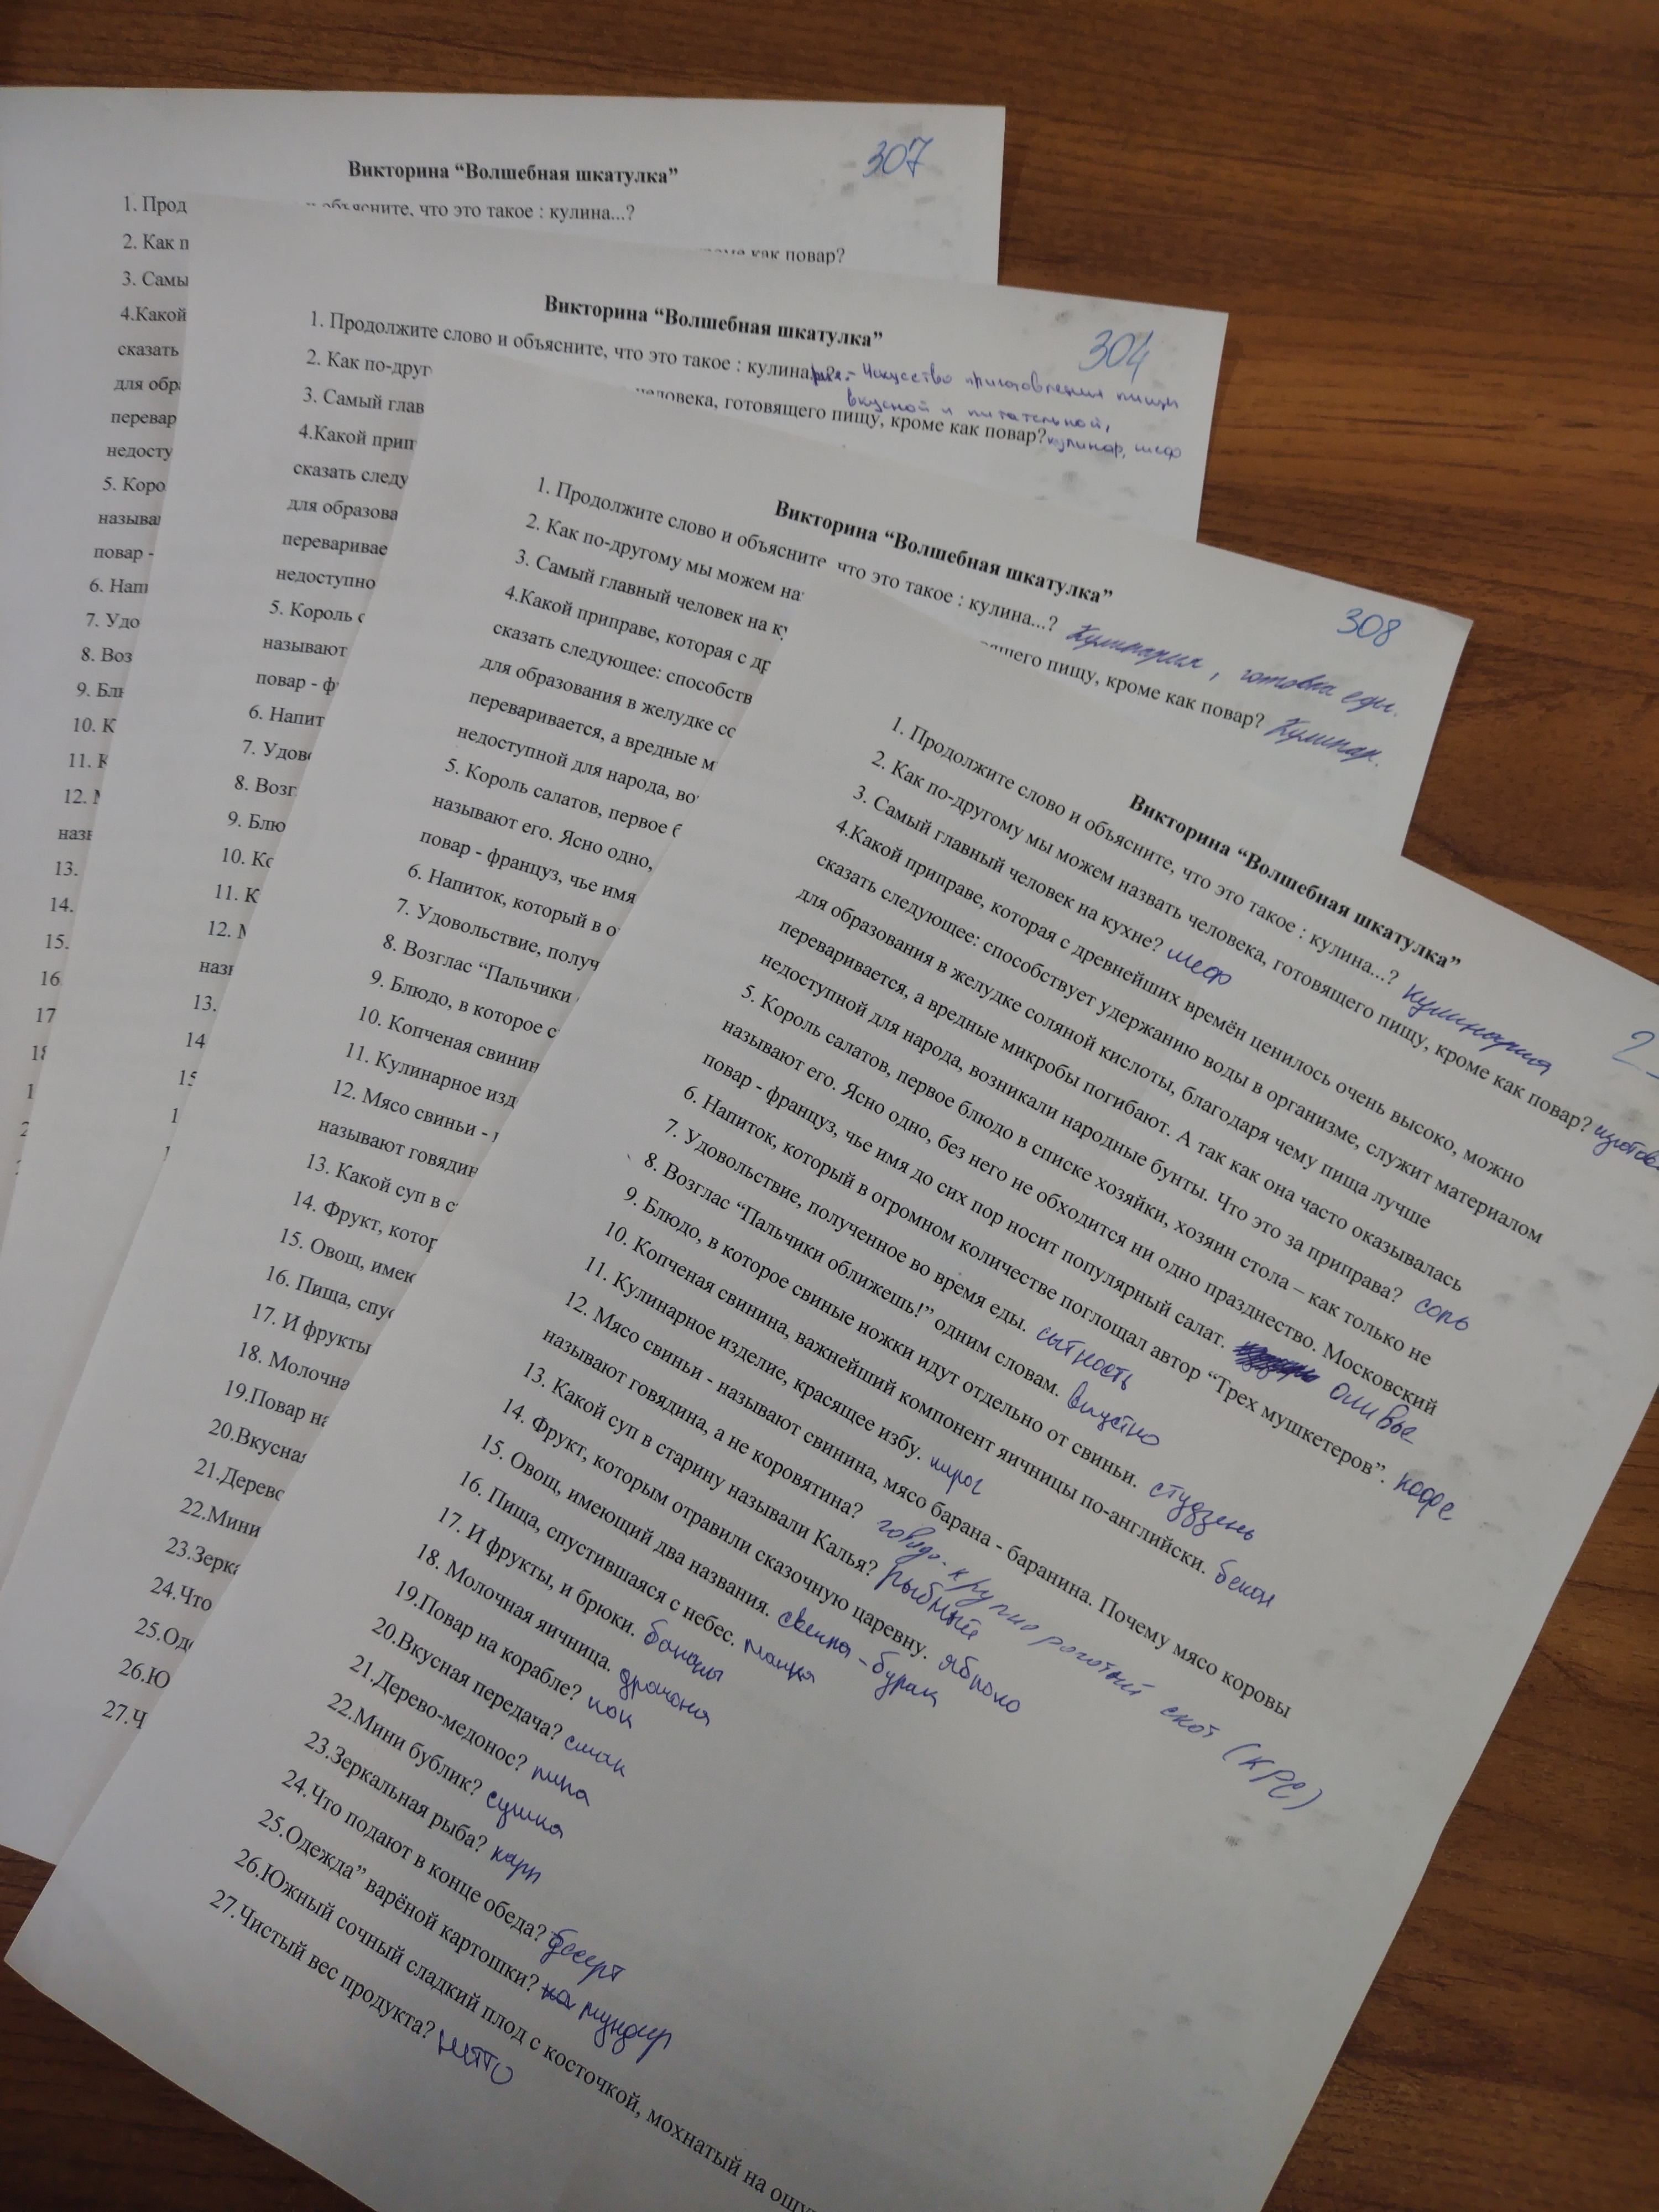 Викторина “Волшебная шкатулка”
307
1. Прод
объясните, что это такое : кулина...?
2. Как п
как повар?
3. Самы
4.Какой
сказать
для обра
перевар
недосту
5. Коро
называ
повар -
6. Нап
7. Удо
8. Воз
9. Бл
10. К
11. К
12. М
назв
13.
14.
15.
16
17
Викторина “Волшебная шкатулка”
304
1. Продолжите слово и объясните, что это такое : кулина...? рия. - Искусство приготовления пищи
вкусной и питательной,
2. Как по-друг
человека, готовящего пищу, кроме как повар? кулинар, шеф
3. Самый глав
4.Какой прип
сказать следу
для образова
перевариве
недоступно
5. Король с
называют
повар - ф
6. Напит
7. Удов
8. Возг
9. Блю
10. Ко
11. К
12. М
назы
13.
14
15
Викторина “Волшебная шкатулка”
308
1. Продолжите слово и объясните, что это такое : кулина...? Кулинария, готовка еды.
2. Как по-другому мы можем наз
пищу, кроме как повар? Кулинар.
3. Самый главный человек на ку
4.Какой приправе, которая с др
сказать следующее: способств
для образования в желудке со
переваривается, а вредные м
недоступной для народа, во
5. Король салатов, первое б
называют его. Ясно одно,
повар - француз, чье имя
6. Напиток, который в о
7. Удовольствие, получ
8. Возглас “Пальчики
9. Блюдо, в которое с
10. Копченая свинин
11. Кулинарное изд
12. Мясо свиньи -
называют говядин
13. Какой суп в с
14. Фрукт, котор
15. Овощ, имею
16. Пища, спус
17. И фрукты
18. Молочна
19.Повар на
20.Вкусная
21.Дерево
22.Мини
23.Зерка
24.Что
25.Оде
26.Ю
27.Ч
Викторина “Волшебная шкатулка”
1. Продолжите слово и объясните, что это такое : кулина...? кулинария
2. Как по-другому мы можем назвать человека, готовящего пищу, кроме как повар?
3. Самый главный человек на кухне? шеф
4.Какой приправе, которая с древнейших времён ценилось очень высоко, можно
сказать следующее: способствует удержанию воды в организме, служит материалом
для образования в желудке соляной кислоты, благодаря чему пища лучше
переваривается, а вредные микробы погибают. А так как она часто оказывалась
недоступной для народа, возникали народные бунты. Что это за приправа? соль
5. Король салатов, первое блюдо в списке хозяйки, хозяин стола – как только не
называют его. Ясно одно, без него не обходится ни одно празднество. Московский
повар - француз, чье имя до сих пор носит популярный салат. оливье
6. Напиток, который в огромном количестве поглощал автор “Трех мушкетеров”. кофе
7. Удовольствие, полученное во время еды. сытность
8. Возглас “Пальчики оближешь!” одним словам. вкустно
9. Блюдо, в которое свиные ножки идут отдельно от свиньи. студзень
10. Копченая свинина, важнейший компонент яичницы по-английски. бекон
11. Кулинарное изделие, красящее избу. пирог
12. Мясо свиньи - называют свинина, мясо барана - баранина. Почему мясо коровы
называют говядина, а не коровятина? говядо-крупно рогатый скот (КРС)
13. Какой суп в старину называли Калья? рыбный
14. Фрукт, которым отравили сказочную царевну. яблоко
15. Овощ, имеющий два названия. свекла - бурак
16. Пища, спустившаяся с небес. манка
17. И фрукты, и брюки. бананы
18. Молочная яичница. драчона
19.Повар на корабле? кок
20.Вкусная передача? смак
21.Дерево-медонос? липа
22.Мини бублик? сушка
23.Зеркальная рыба? карп
24.Что подают в конце обеда? десерт
25.Одежда” варёной картошки? мундир
26.Южный сочный сладкий плод с косточкой, мохнатый на ощу
27.Чистый вес продукта? нетто